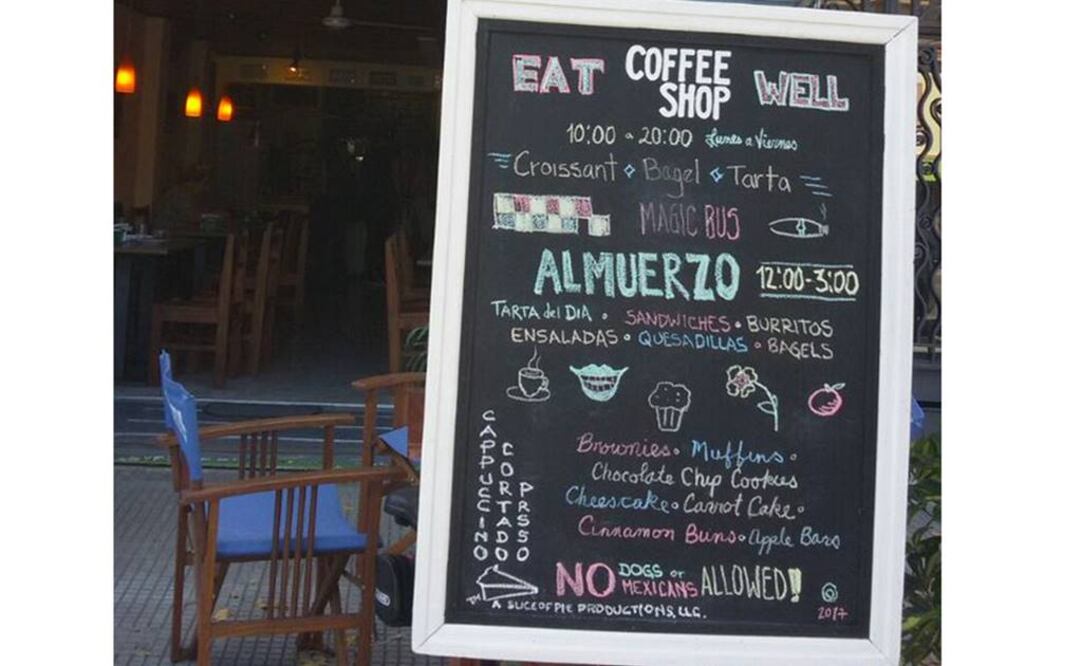 EAT COFFEE SHOP WELL
10:00 a 20:00 Lunes a Viernes
Croissant Bagel Tarta
MAGIC BUS
ALMUERZO 12:00-3:00
TARTA del DIA • SANDWICHES • BURRITOS
ENSALADAS • QUESADILLAS • BAGELS
CAPPUCCINO
CORTADO
PRSSO
Brownies • Muffins •
Chocolate Chip Cookies
Cheescake • Carrot Cake •
Cinnamon Buns • Apple Bars
NO DOGS or MEXICANS ALLOWED!
TM A SLICE OF PIE PRODUCTIONS, LLC.
2017